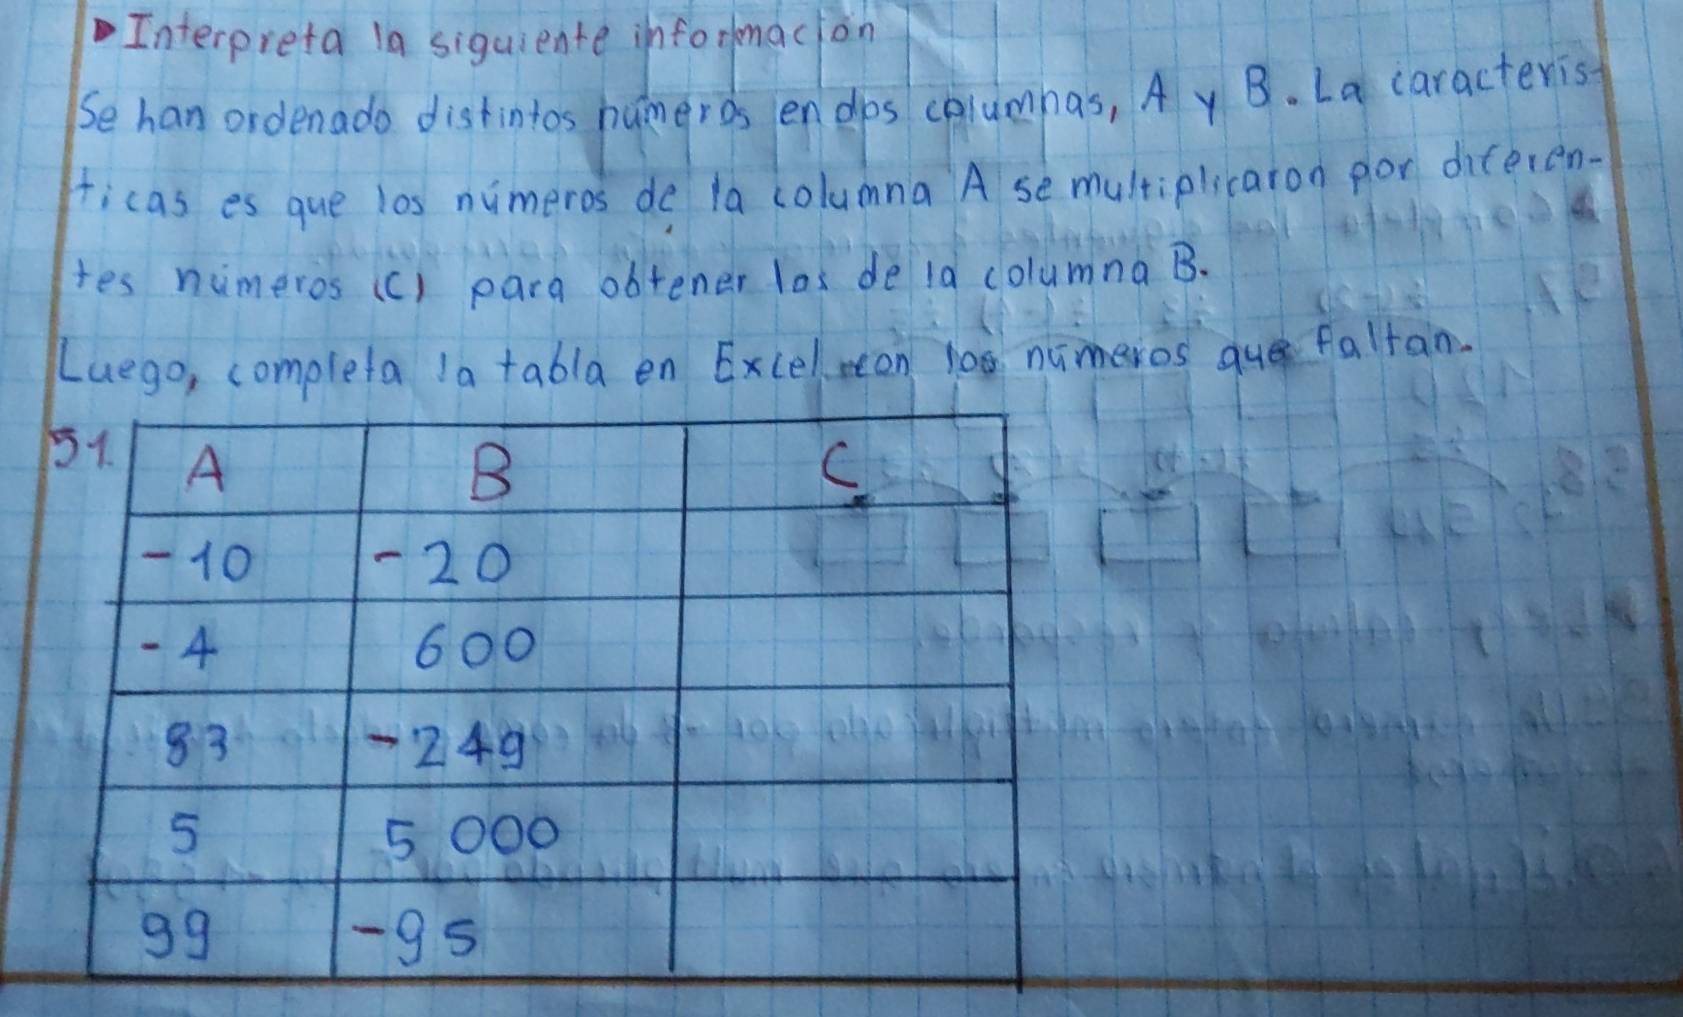 Interpreta la siguiente información
Se han ordenado distintos números en dos columnas, A y B. La caracterís-
ticas es que los números de la columna A se multiplicaron por diferen-
tes números (C) para obtener los de la columna B.
Luego, completa la tabla en Excel con los números que faltan.
51. A B C
-10 -20
-4 600
83 -249
5 5 000
99 -95